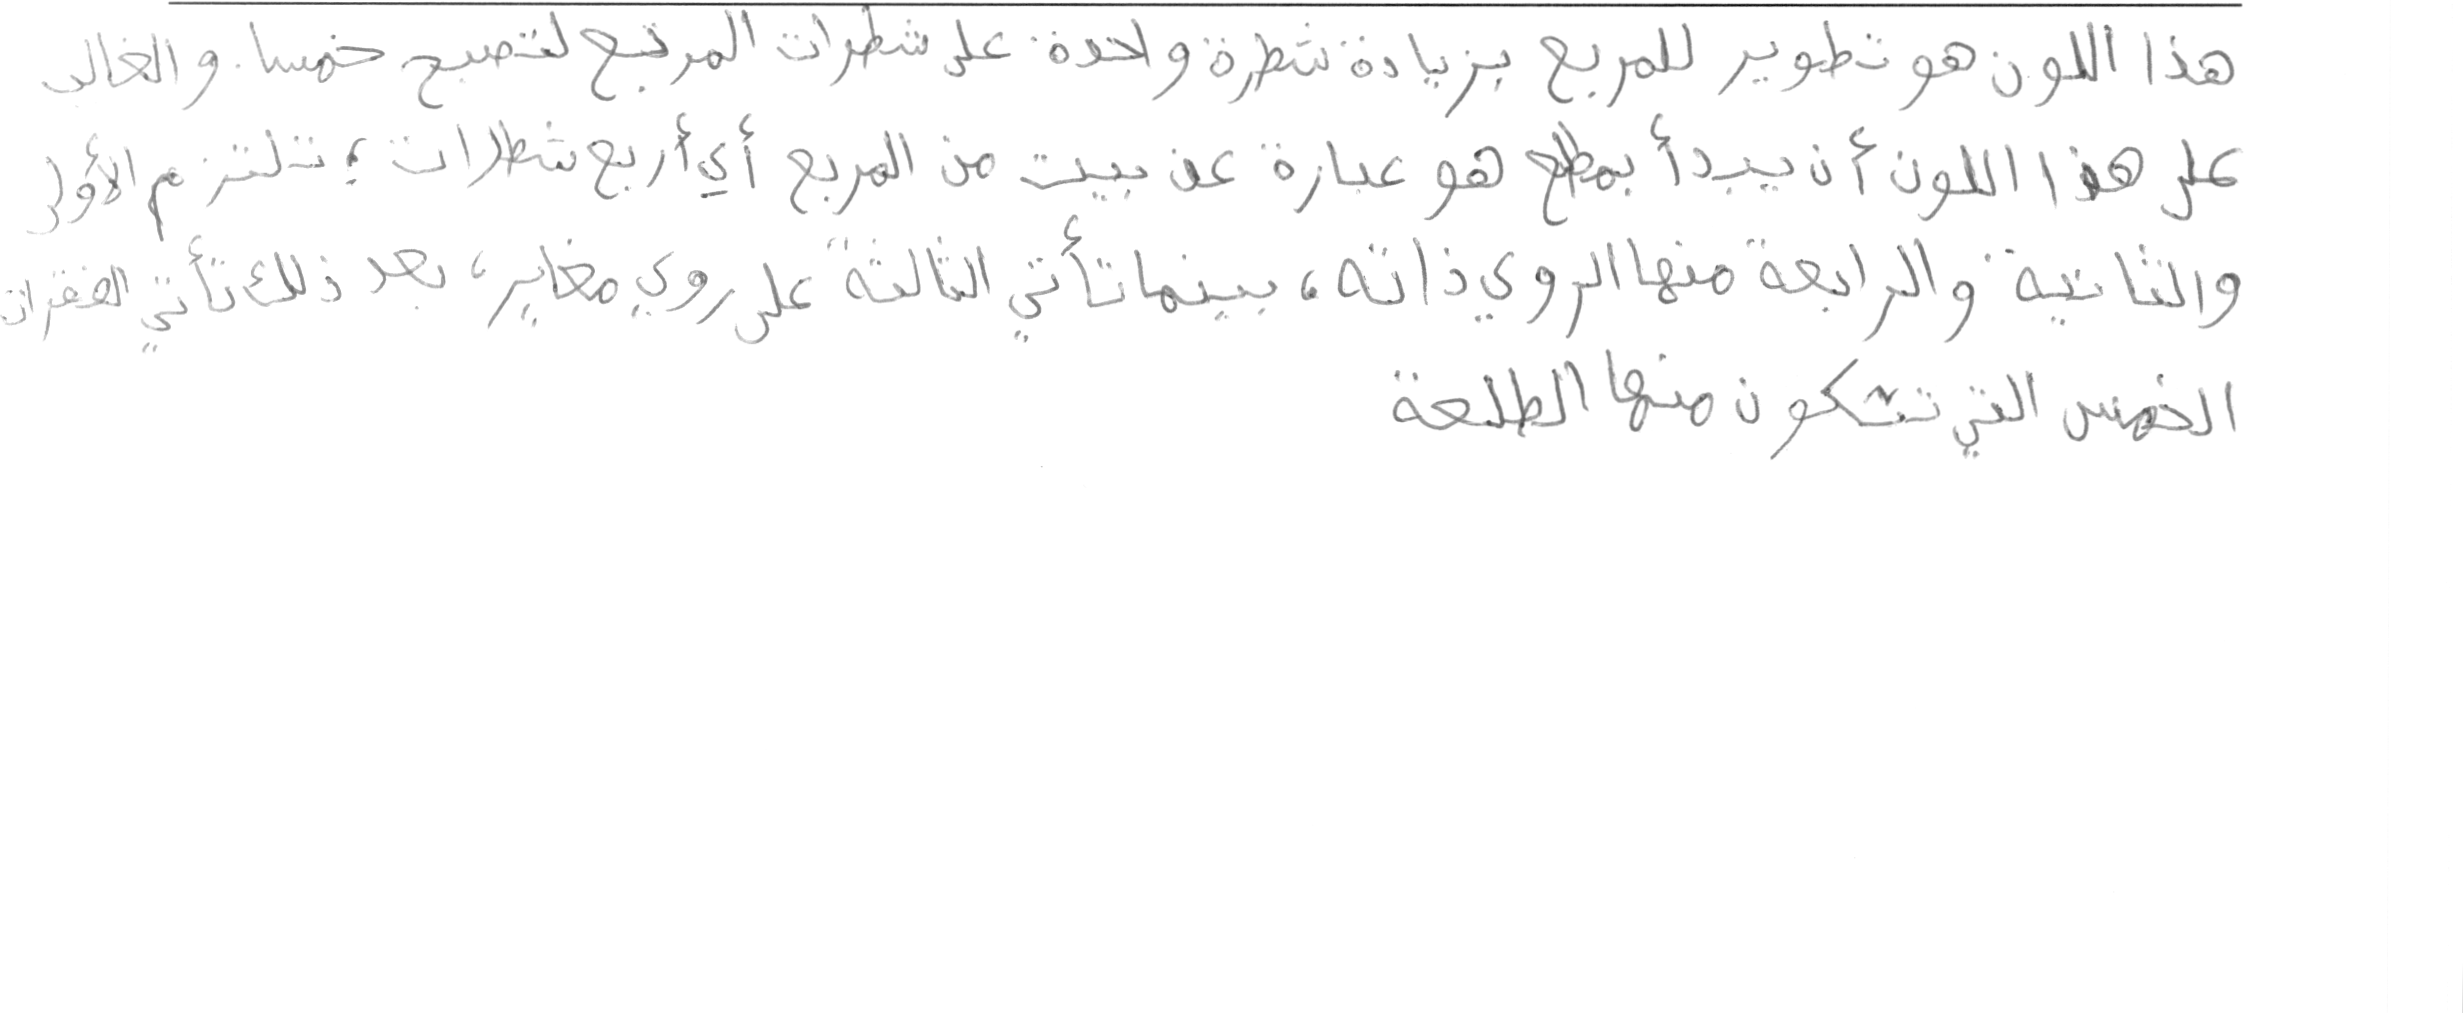 هذا اللون هو تطوير للمربع بزيادة شطرة واحدة على شطرات المربع لتصبح خمسا. والغالب
على هذا اللون أن يبدأ بمطلع هو عبارة عن بيت من المربع أي أربع شطرات، تلتزم الأولى
والثانية والرابعة منها الروي ذاته، بينما تأتي الثالثة على روي مغاير، بعد ذلك تأتي الفقرات
الخمس التي تتكون منها الطلعة